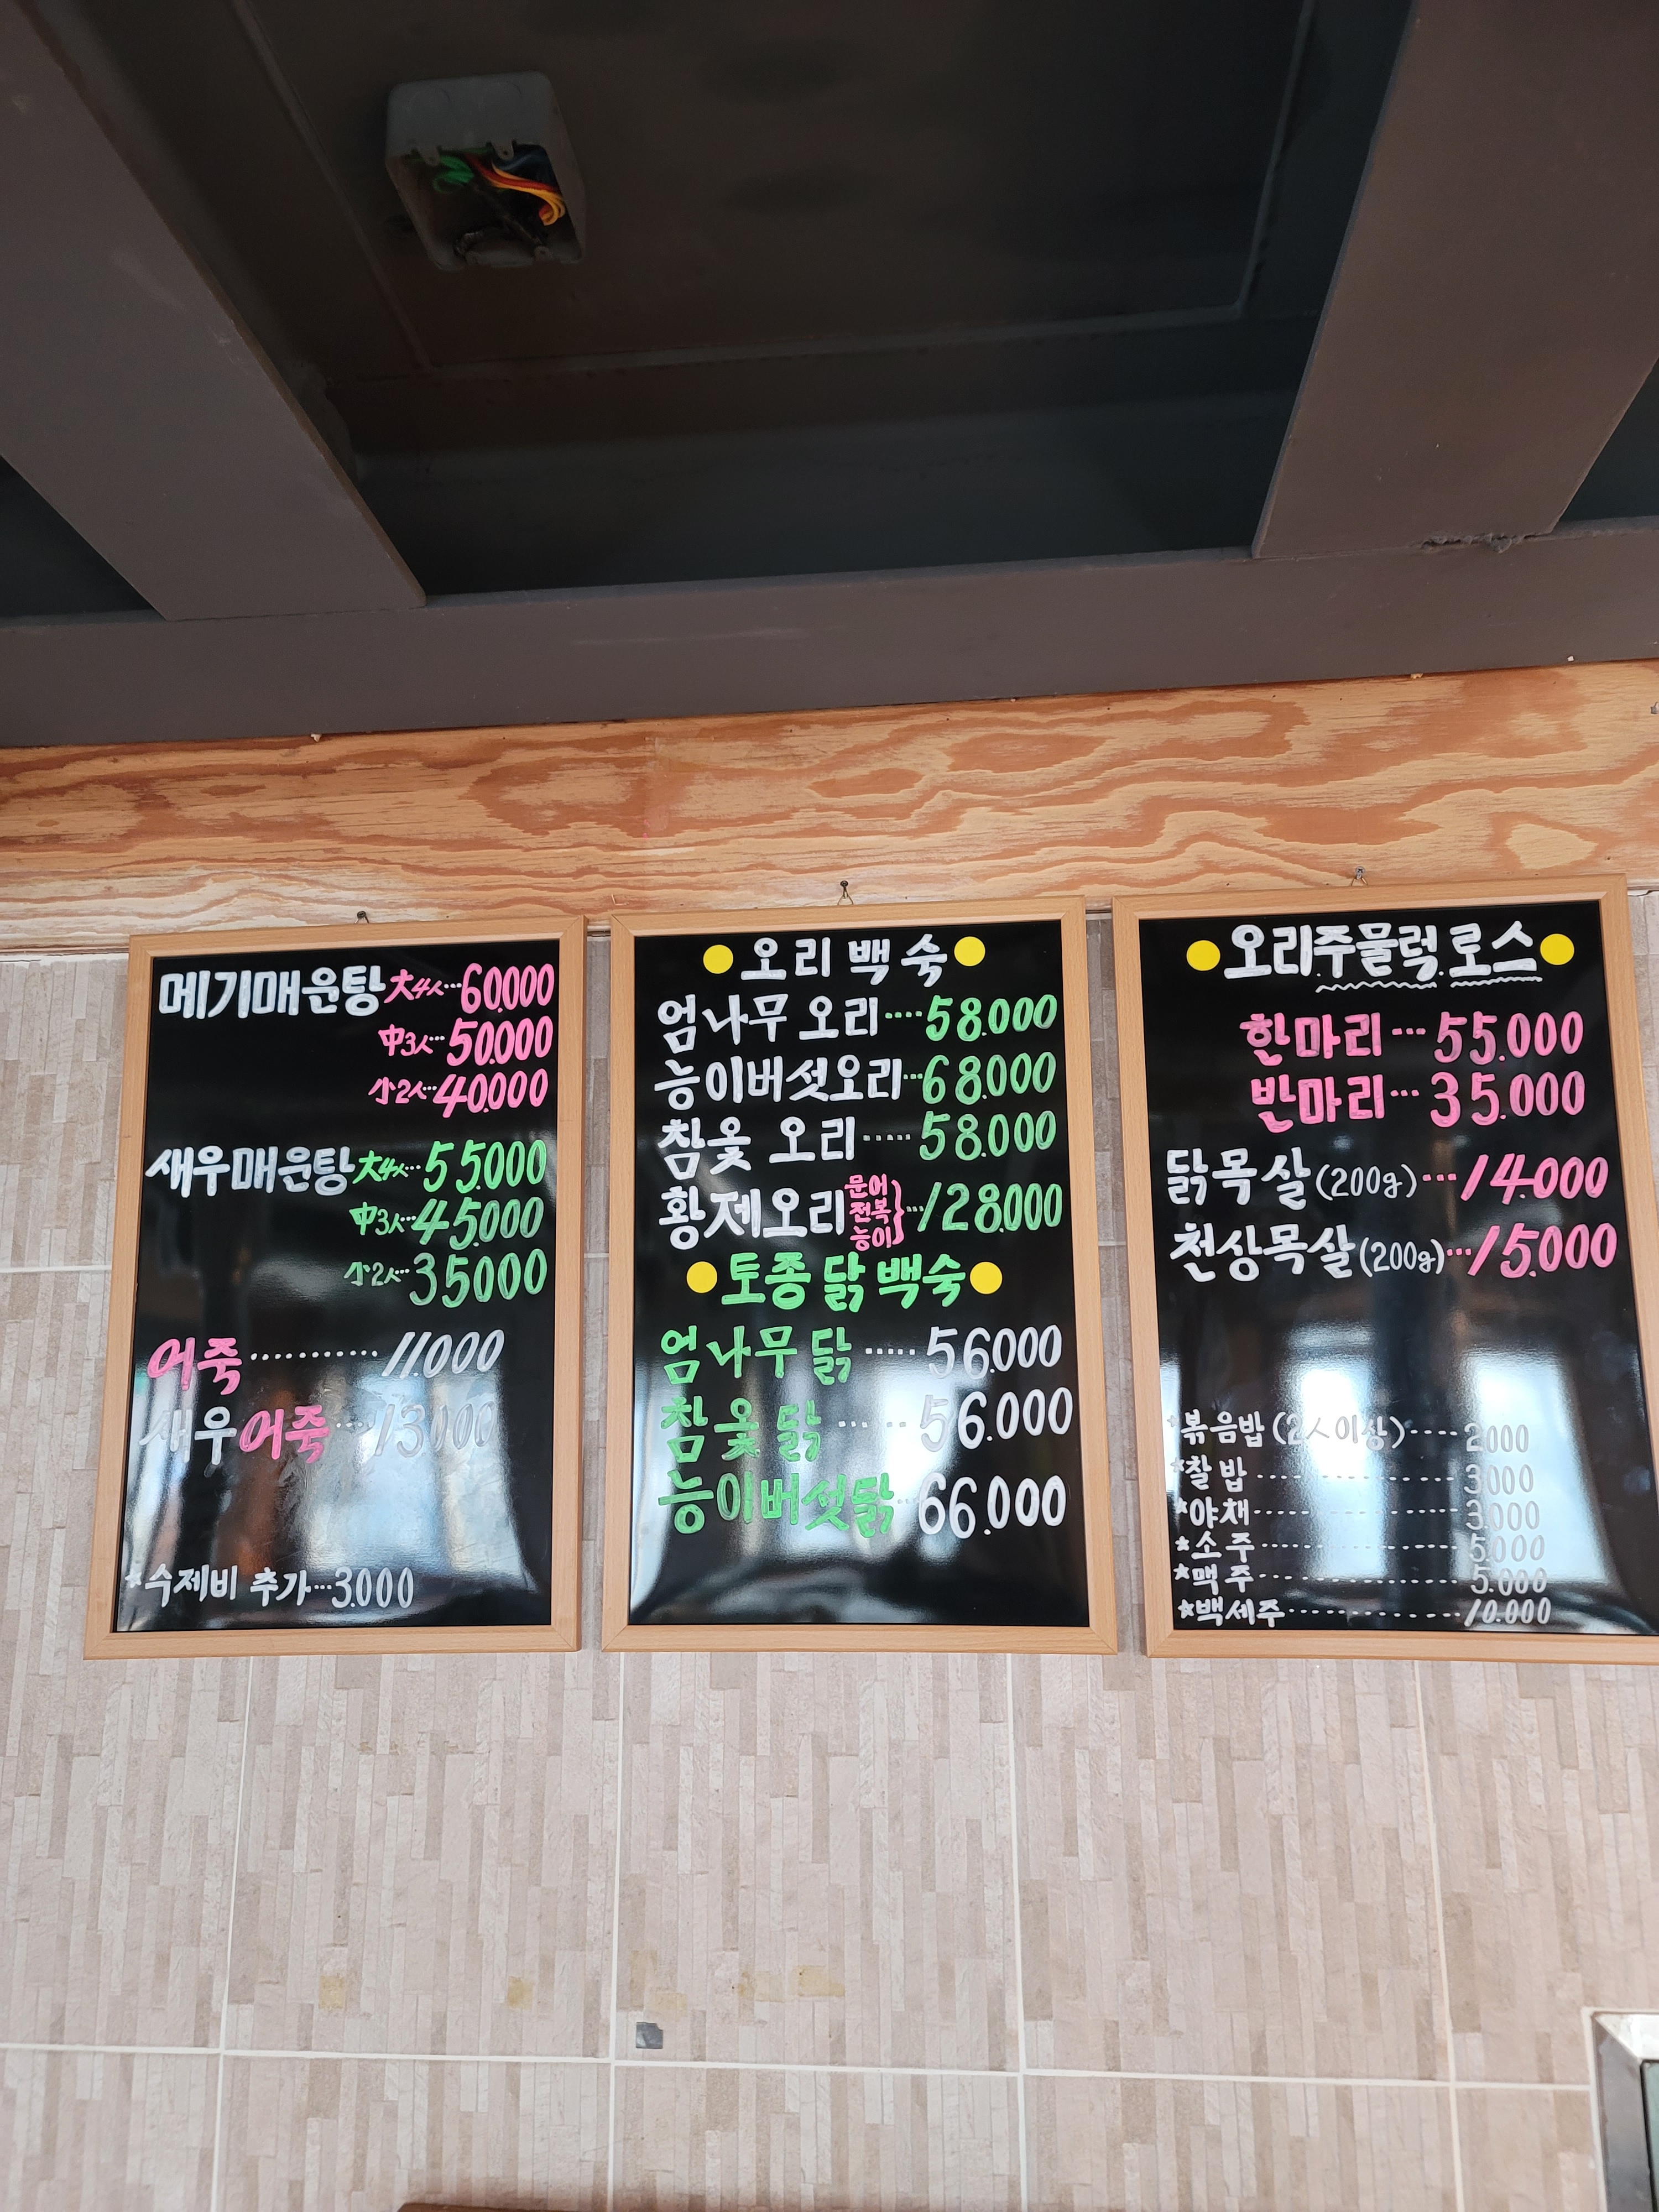 메기매운탕 大4人…60.000
中3人…50.000
小2人…40.000
새우매운탕 大4人…55.000
中3人…45.000
小2人…35000
어죽…………11.000
새우어죽…13000
*수제비 추가…3.000
오리 백숙
엄나무 오리….58.000
능이버섯오리…68.000
참옻 오리…..58.000
황제오리 문어 전복 능이 } …128.000
토종 닭 백숙
엄나무 닭…..56.000
참옻 닭……56.000
능이버섯닭…66.000
오리주물럭.로스
한마리…55.000
반마리…35.000
닭목살(200g)…14.000
천상목살(200g)…15.000
*볶음밥(2人이상)….2000
*찰밥……………3000
*야채……………3.000
*소주……………5.000
*맥주……………5.000
*백세주……………10.000